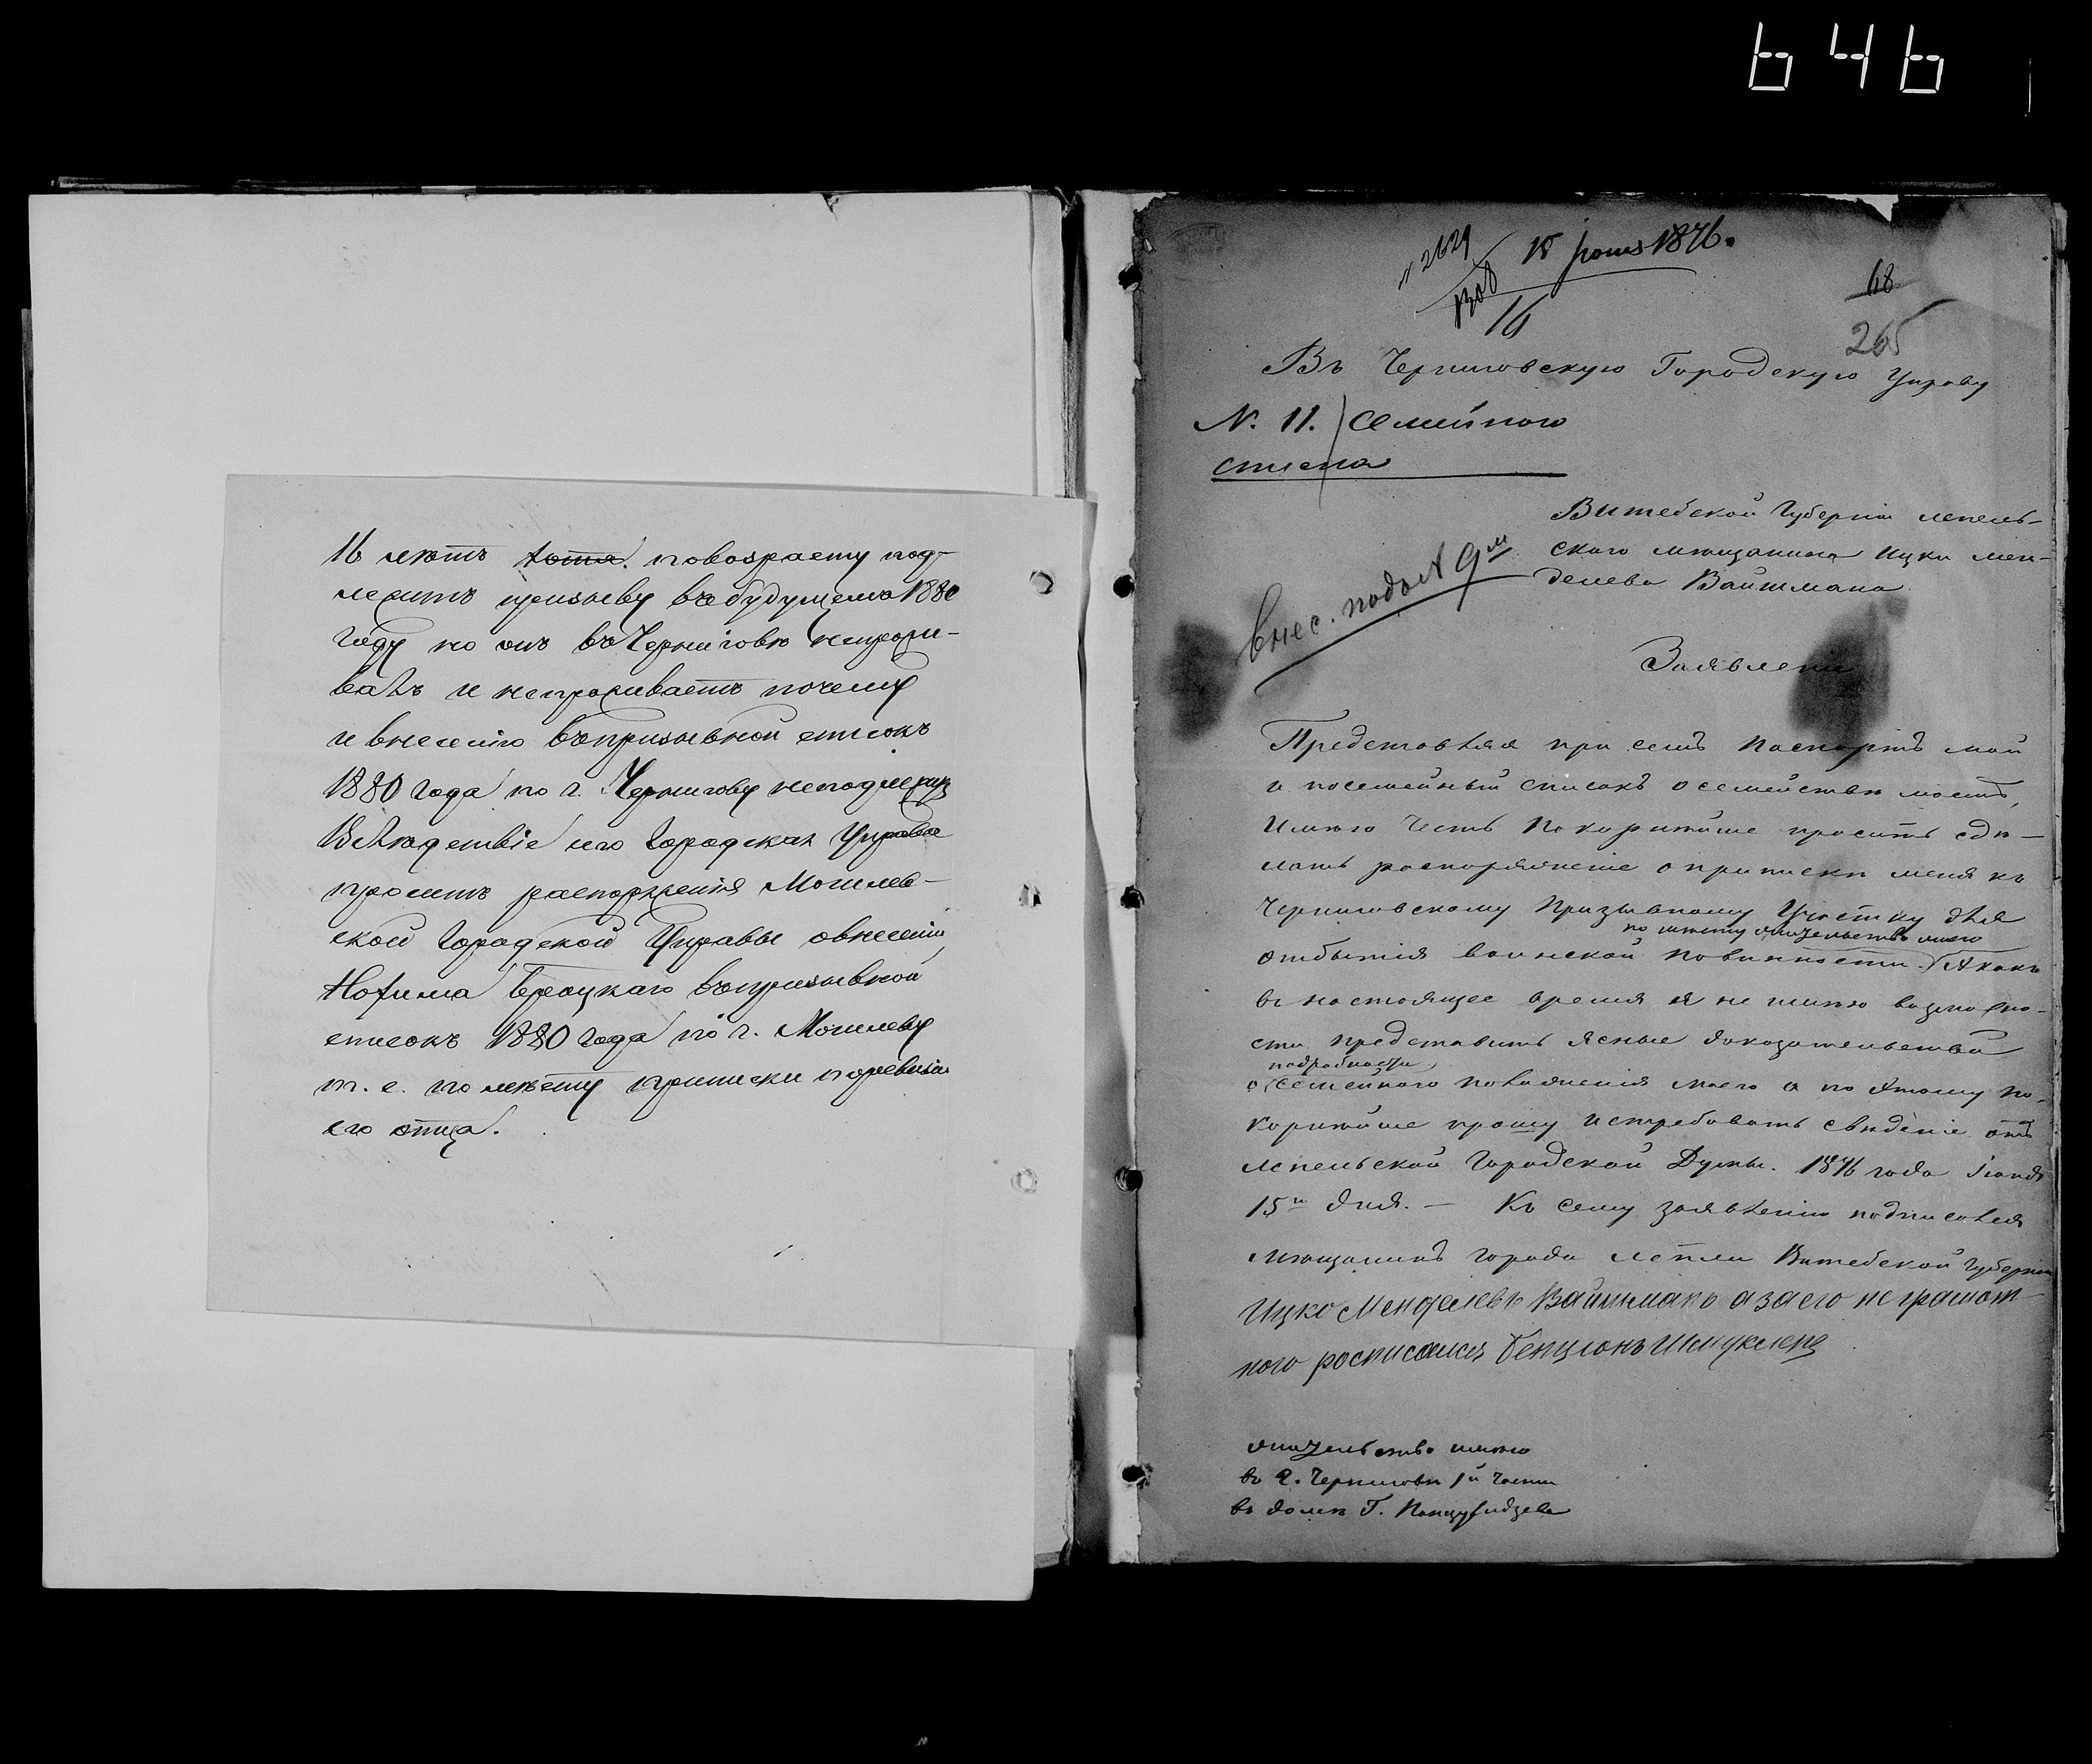 646
16 лѣтъ хотя повозрасту под-
лежитъ призыву въ будущемъ 1880
году но онъ въ Черниговѣ непрожи-
валъ и непроживаетъ почему
и внесенію въ призывной списокъ
1880 года по г. Чернигову неподлежитъ
Вслѣдствіе чего Городская Управа
проситъ распоряженія Могилев-
ской Городской Управы овнесеніи
Нохима въ призывной
списокъ 1880 года по г. Могилеву
т. е. по мѣсту приписки поревизіи
его отца.
N 2629 15 Іюня 1876.
16
68
265
Въ Черниговскую Городскую Управу
N. 11. Семейнаго
списка
Витебской Губерніи лепель-
скаго мѣщанина Ицки Мен-
делева Вайшмана
Внес. подъ N 9м
Заявленіе
Представляя при семъ паспортъ мой
и посемейный списокъ о семействѣ моемъ,
Имѣю честь покорнѣйше просить сдѣ-
лать распоряженіе о припискѣ меня къ
Черниговскому Призывному Участку для
по мѣсту жительства моего
отбытія воинской повинности. А какъ
въ настоящее время я не имѣю возможно-
сти представить ясные доказательства
подробности
о семейнаго положенія моего а по этому по-
корнѣйше прошу истребовать свѣденіе отъ
лепельской Городской Думы. 1876 года Іюня
15го дня. — Къ сему заявленію подписался
мѣщанинъ города лепля Витебской Губерніи
Ицко Менделевъ Вайшманъ а за его неграмот-
ного росписался Бенціонъ Шмуклеръ
жительство имѣю
въ г. Черниговѣ 1й части
въ домѣ Г.